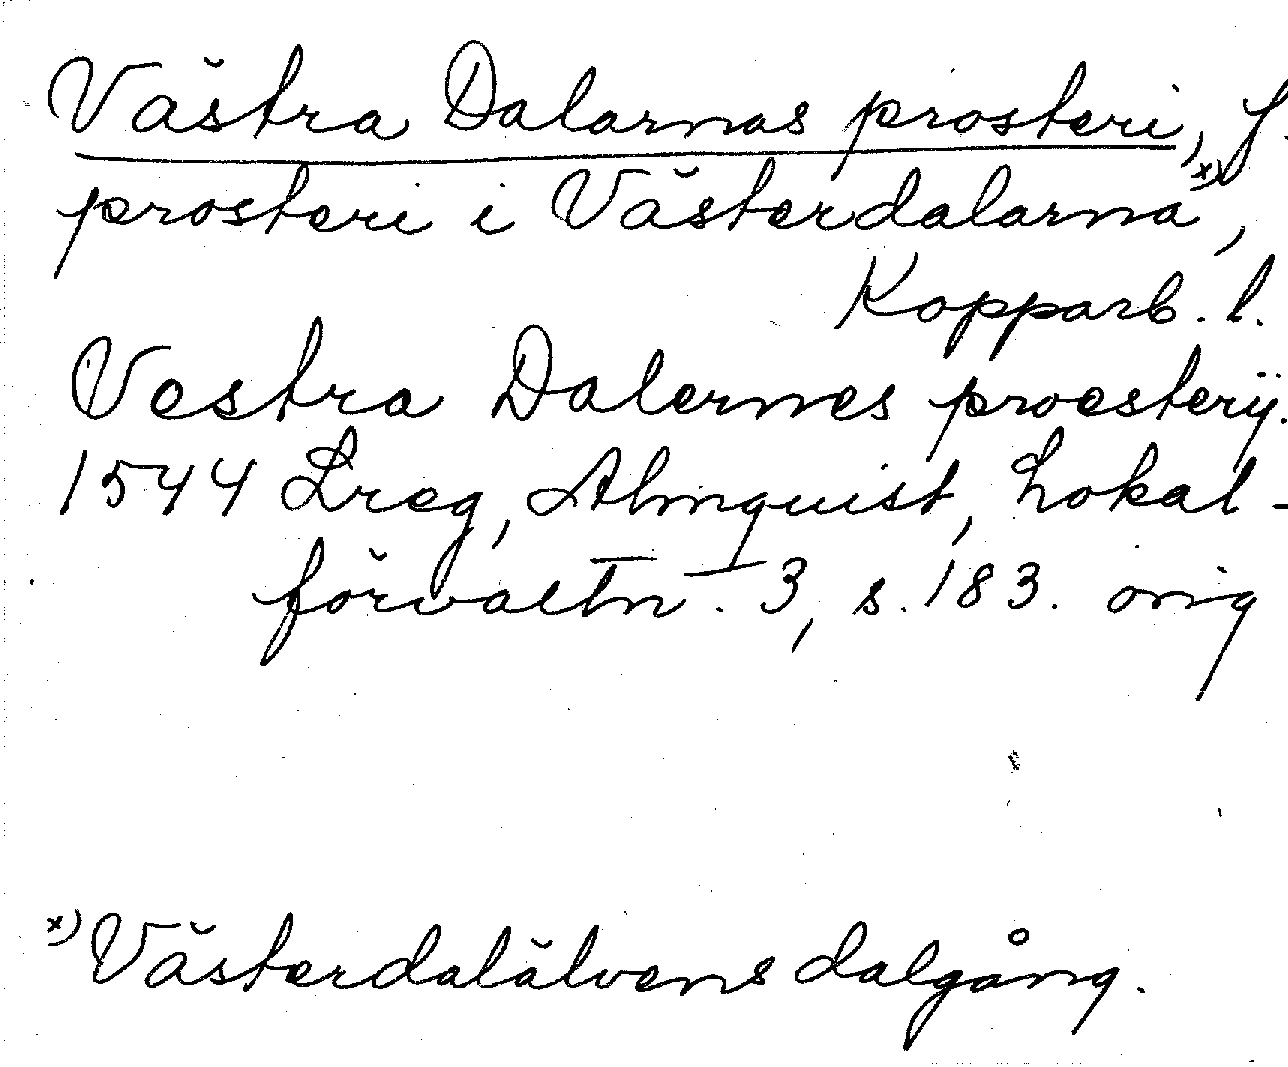 Västra Dalarnas prosteri, f.
prosteri i Västerdalarna x),
Kopparb. l.
Vestra Dalernes proesterÿ.
1544 Lreg, Almquist, Lokal-
förvaltn. 3, s. 183. orig
x) Västerdalälvens dalgång.